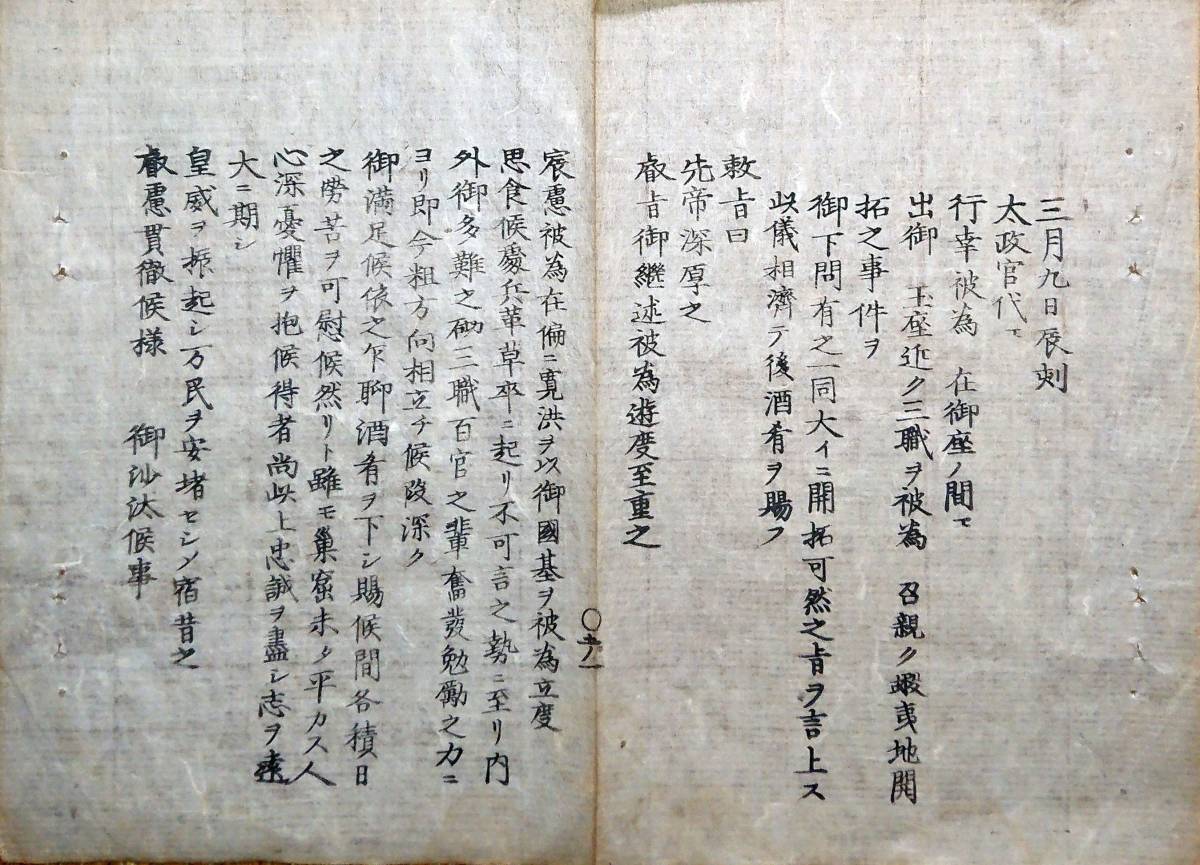 三月九日辰刻
太政官代ヱ
行幸被為　在御座ノ間ヱ
出御　玉座近ク三職ヲ被為　召親ク蝦夷地開
拓之事件ヲ
御下問有之一同大イニ開拓可然之旨ヲ言上ス
此儀相濟テ後酒肴ヲ賜フ
敕旨曰
先帝深厚之
叡旨御継述被為遊度至重之
宸慮被為在偏ニ寛洪ヲ以御國基ヲ被為立度
思食候處兵革草卒ニ起リ不可言之勢ニ至リ内
外御多難之砌三職百官之輩奮發勉勵之力ニ
ヨリ即今粗方向相立チ候段深ク
御満足候依之乍聊酒肴ヲ下シ賜候間各積日
之勞苦ヲ可慰候然リト雖モ巣窟未タ平カス人
心深憂懼ヲ抱候得者尚此上忠誠ヲ盡シ志ヲ遠
大ニ期シ
皇威ヲ振起シ万民ヲ安堵セシメ宿昔之
叡慮貫徹候様　御沙汰候事